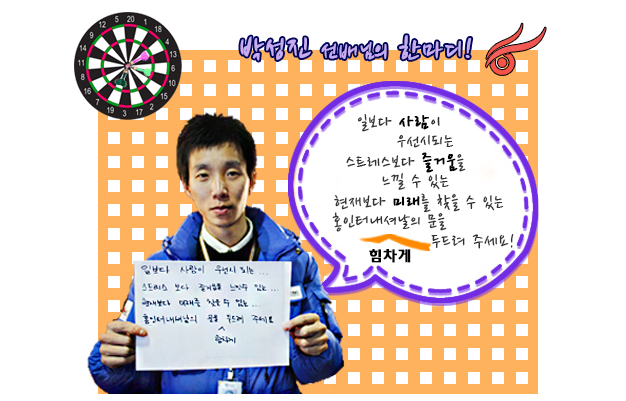 박성진 선배님의 한마디!
일보다 사람이
우선시되는
스트레스보다 즐거움을
느낄 수 있는
현재보다 미래를 찾을 수 있는
홍인터내셔날의 문을
힘차게
두드려 주세요!
일보다 사람이 우선시 되는...
스트레스 보다 즐거움을 느낄수 있는...
현재보다 미래를 찾을 수 있는...
홍인터내셔날의 문을 두드려 주세요
힘차게
20
1
18
4
13
6
10
15
2
17
3
19
7
16
8
11
14
9
12
5